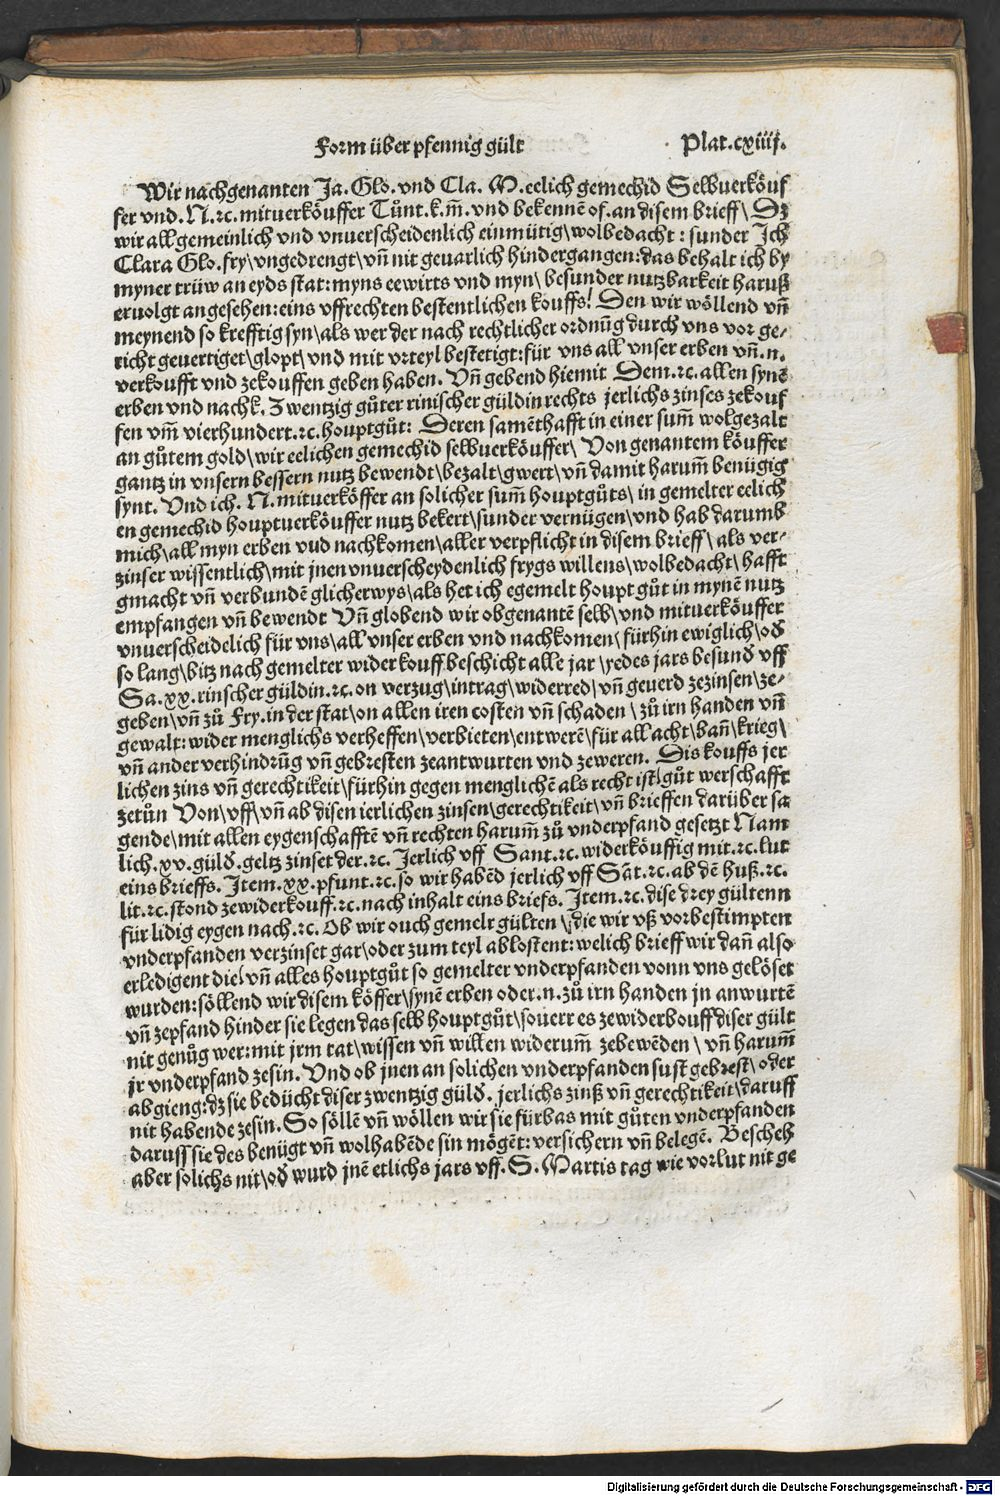 Form über pfennig gült Plat.cxiiij.
Wir nachgenanten Ja. Glo. vnd Cla. M. eelich gemechid Selbuerköuf
fer vnd. N.⁊c. mituerköuffer Tůnt.k.m̄. vnd bekennē of. an disem brieff \ Dz
wir all gemeinlich vnd vnuerscheidenlich einmütig\wolbedacht : sunder Ich
Clara Glo. fry\vngedrengt\vn̄ nit geuarlich hindergangen:das behalt ich by
myner trüw an eyds stat: myns eewirts vnd myn\ besunder nutzbarkeit haruß
eruolgt angesehen: eins vffrechten bestentlichen kouffs! Den wir wöllend vn̄
meynend so krefftig syn\als wer der nach rechtlicher ordnūg durch vns vor ge⸗
richt geuertiget\glopt\vnd mit vrteyl bestetigt: für vns all vnser erben vn̄.n.
verkoufft vnd zekouffen geben haben. Vn̄ gebend hiemit Dem.⁊c. allen synē
erben vnd nachk. Zwentzig gůter rinischer güldin rechts jerlichs zinses zekouf
fen vm̄ vierhundert.⁊c. houptgůt: Deren samēthafft in einer sum̄ wolgezalt
an gůtem gold\wir eelichen gemechid selbuerköuffer\ Von genantem köuffer
gantz in vnsern bessern nutz bewendt\bezalt\gwert\vn̄ damit harum̄ benügig
synt. Vnd ich. N. mituerköffer an solicher sum̄ houptgůts\in gemelter eelich
en gemechid houptuerköuffer nutz bekert\sunder vernügen\vnd hab darumb
mich\all myn erben vud nachkomen\aller verpflicht in disem brieff\ als ver⸗
zinser wissentlich\mit jnen vnuerscheydenlich frygs willens\wolbedacht\ hafft
gmacht vn̄ verbundē glicherwys\als het ich egemelt houpt gůt in mynē nutz
empfangen vn̄ bewendt Vn̄ globend wir obgenantē selb\vnd mituerköuffer
vnuerscheidelich für vns\all vnser erben vnd nachkomen\fürhin ewiglich\od̄
so lang\bitz nach gemelter widerkouff beschicht alle jar \yedes jars besund̄ vff
Sa.xx.rinscher güldin.⁊c. on verzug\intrag\widerred\vn̄ geuerd zezinsen\ze⸗
geben\vn̄ zů Fry. in der stat\on allen iren costen vn̄ schaden \ zů irn handen vn̄
gewalt: wider menglichs verheffen\verbieten\entwerē\für all acht\ban̄\krieg\
vn̄ ander verhindrūg vn̄ gebresten zeantwurten vnd zeweren. Dis kouffs jer
lichen zins vn̄ gerechtikeit\fürhin gegen menglichē als recht ist\gůt werschafft
zetůn Von\vff\vn̄ ab disen ierlichen zinsen\gerechtikeit\vn̄ brieffen darüber sa
gende\mit allen eygenschafftē vn̄ rechten harum̄ zů vnderpfand gesetzt Nam
lich.xv.güld̄.geltz zinset der.⁊c. Jerlich vff Sant.⁊c. widerköuffig mit.⁊c. lut
eins brieffs. Item.xx.pfunt.⁊c. so wir habēd jerlich vff Sāt.⁊c. ab dē huß.⁊c.
lit.⁊c. stond zewiderkouff.⁊c. nach inhalt eins briefs. Item.⁊c. dise drey gültenn
für lidig eygen nach.⁊c. Ob wir ouch gemelt gülten \ die wir vß vorbestimpten
vnderpfanden verzinset gar\oder zum teyl ablostent: welich brieff wir dan̄ also
erledigent die\ vn̄ alles houptgůt so gemelter vnderpfanden vonn vns gelöset
wurden: söllend wir disem köffer\synē erben oder.n.zů irn handen jn anwurtē
vn̄ zepfand hinder sie legen das selb houptgůt\souerr es zewiderbouff diser gült
nit genůg wer: mit jrm rat\wissen vn̄ willen widerum̄ zebewēden \ vn̄ harum̄
jr vnderpfand zesin. Vnd ob jnen an solichen vnderpfanden sust gebrest\ oder
abgieng: dz sie bedücht diser zwentzig güld̄. jerlichs zinß vn̄ gerechtikeit\daruff
nit habende zesin. So söllē vn̄ wöllen wir sie fürbas mit gůten vnderpfanden
daruff sie des benügt vn̄ wolhabēde sin mögēt: versichern vn̄ belegē. Bescheh
aber solichs nit\od̄ wurd jnē etlichs jars vff. S. Martis tag wie vorlut nit ge
Digitalisierung gefördert durch die Deutsche Forschungsgemeinschaft - DFG